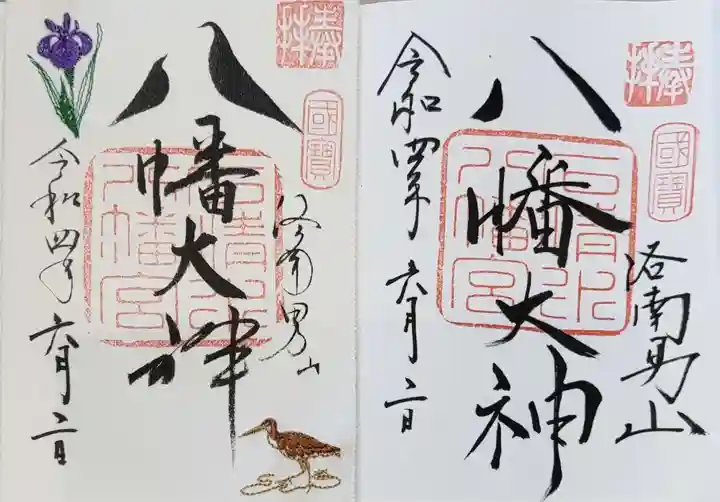 奉拝
國寶
洛南男山
八幡大神
石清水八幡宮
令和四年 六月二日
奉拝
國寶
洛南男山
八幡大神
石清水八幡宮
令和四年 六月二日